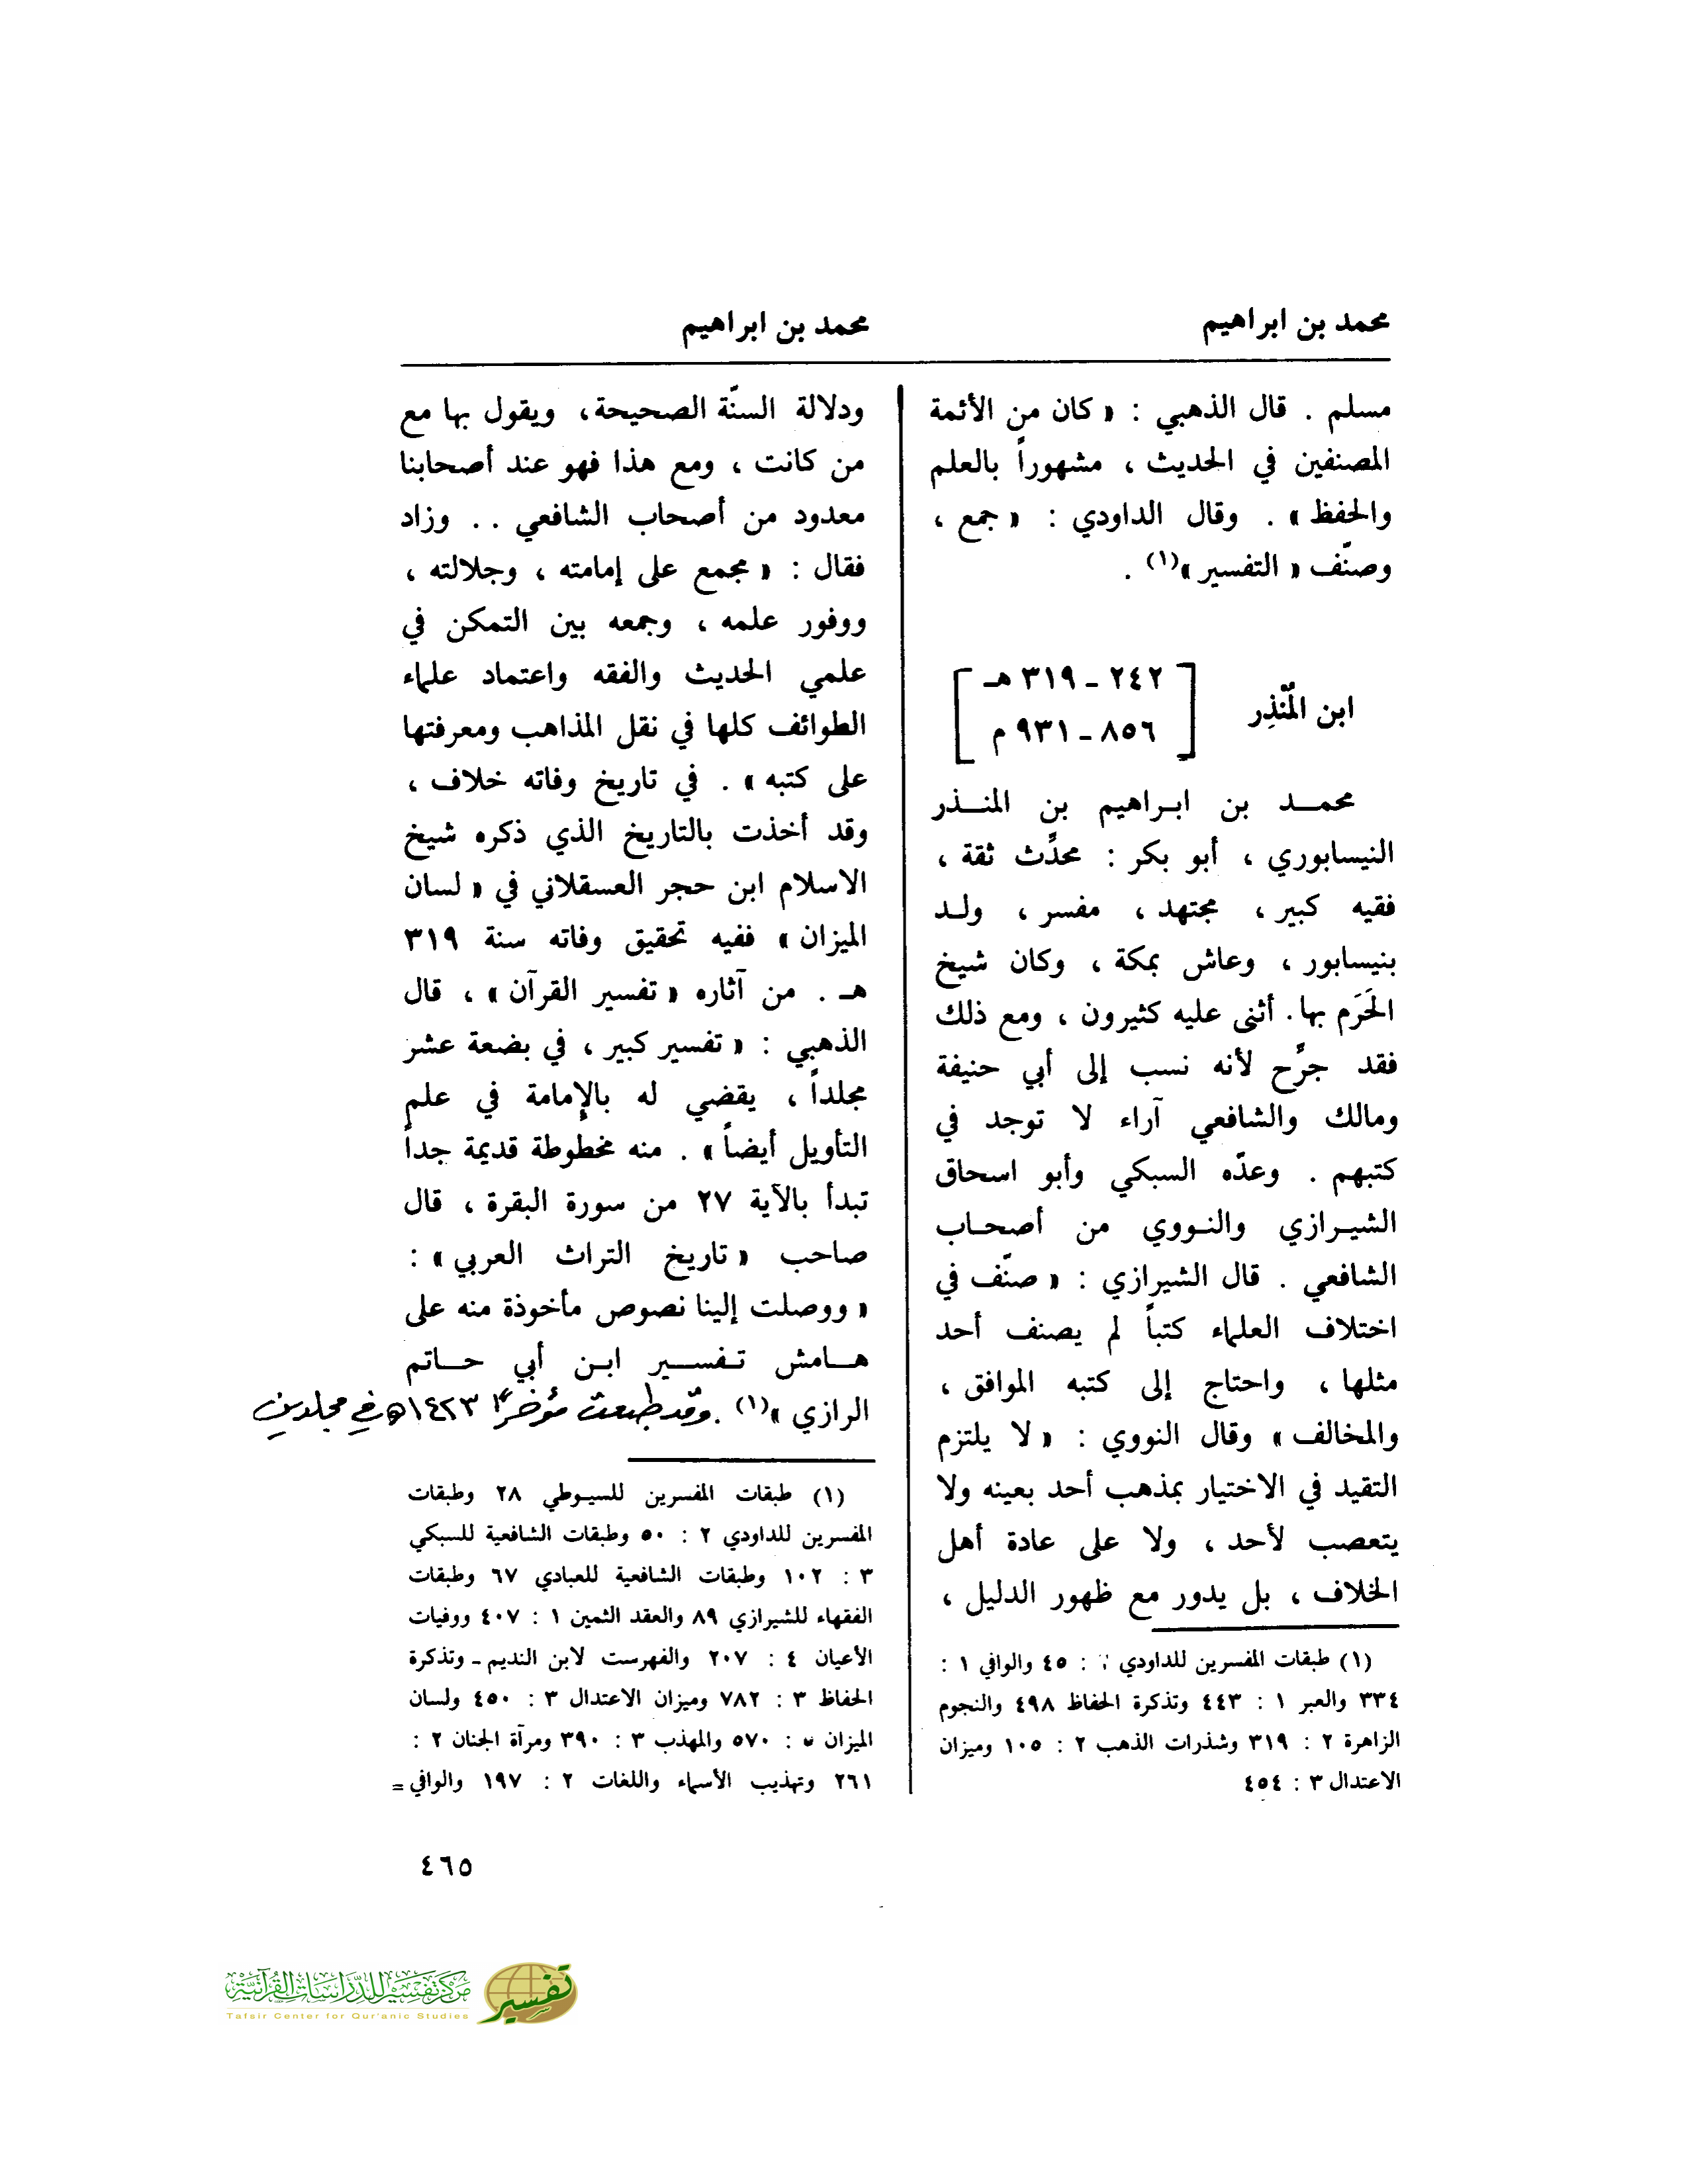 محمد بن ابراهيم
محمد بن ابراهيم
مسلم . قال الذهبي : « كان من الأئمة
المصنفين في الحديث ، مشهوراً بالعلم
والحفظ » . وقال الداودي : « جمع ،
وصنّف « التفسير »(١) .
ابن المُنْذِر
٢٤٢ ـ ٣١٩ هـ
٨٥٦ ـ ٩٣١ م
محمـــد بن ابـراهيم بن المنـــذر
النيسابوري ، أبو بكر : محدِّث ثقة ،
فقيه كبير ، مجتهد ، مفسر ، ولـد
بنيسابور ، وعاش بمكة ، وكان شيخ
الحَرَم بها . أثنى عليه كثيرون ، ومع ذلك
فقد جرِّح لأنه نسب إلى أبي حنيفة
ومالك والشافعي آراء لا توجد في
كتبهم . وعدّه السبكي وأبو اسحاق
الشيـرازي والنـووي من أصحـاب
الشافعي . قال الشيرازي : « صنّف في
اختلاف العلماء كتباً لم يصنف أحد
مثلها ، واحتاج إلى كتبه الموافق ،
والمخالف » وقال النووي : « لا يلتزم
التقيد في الاختيار بمذهب أحد بعينه ولا
يتعصب لأحد ، ولا على عادة أهل
الخلاف ، بل يدور مع ظهور الدليل ،
(١) طبقات المفسرين للداودي : ٤٥ والوافي ١ :
٣٣٤ والعبر ١ : ٤٤٣ وتذكرة الحفاظ ٤٩٨ والنجوم
الزاهرة ٢ : ٣١٩ وشذرات الذهب ٢ : ١٠٥ وميزان
الاعتدال ٣ : ٤٥٤
ودلالة السنّة الصحيحة ، ويقول بها مع
من كانت ، ومع هذا فهو عند أصحابنا
معدود من أصحاب الشافعي . . وزاد
فقال : « مجمع على إمامته ، وجلالته ،
ووفور علمه ، وجمعه بين التمكن في
علمي الحديث والفقه واعتماد علماء
الطوائف كلها في نقل المذاهب ومعرفتها
على كتبه » . في تاريخ وفاته خلاف ،
وقد أخذت بالتاريخ الذي ذكره شيخ
الاسلام ابن حجر العسقلاني في « لسان
الميزان » ففيه تحقيق وفاته سنة ٣١٩
هـ . من آثاره « تفسير القرآن » ، قال
الذهبي : « تفسير كبير ، في بضعة عشر
مجلداً ، يقضي له بالإمامة في علم
التأويل أيضاً » . منه مخطوطة قديمة جداً
تبدأ بالآية ٢٧ من سورة البقرة ، قال
صاحب « تاريخ التراث العربي » :
« ووصلت إلينا نصوص مأخوذة منه على
هـــامش تـفسـير ابـن أبي حـــاتم
الرازي »(١) . وقد طبعت مؤخراً ١٤٢٣هـ في مجلدين
(١) طبقات المفسرين للسيـوطي ٢٨ وطبقات
المفسرين للداودي ٢ : ٥٠ وطبقات الشافعية للسبكي
٣ : ١٠٢ وطبقات الشافعية للعبادي ٦٧ وطبقات
الفقهاء للشيرازي ٨٩ والعقد الثمين ١ : ٤٠٧ ووفيات
الأعيان ٤ : ٢٠٧ والفهرست لابن النديم ـ وتذكرة
الحفاظ ٣ : ٧٨٢ وميزان الاعتدال ٣ : ٤٥٠ ولسان
الميزان ٥ : ٥٧٠ والمهذب ٣ : ٣٩٠ ومرآة الجنان ٢ :
٢٦١ وتهذيب الأسماء واللغات ٢ : ١٩٧ والوافي =
٤٦٥
مركز تفسير للدراسات القرآنية
Tafsir Center for Qur'anic Studies
تفسير